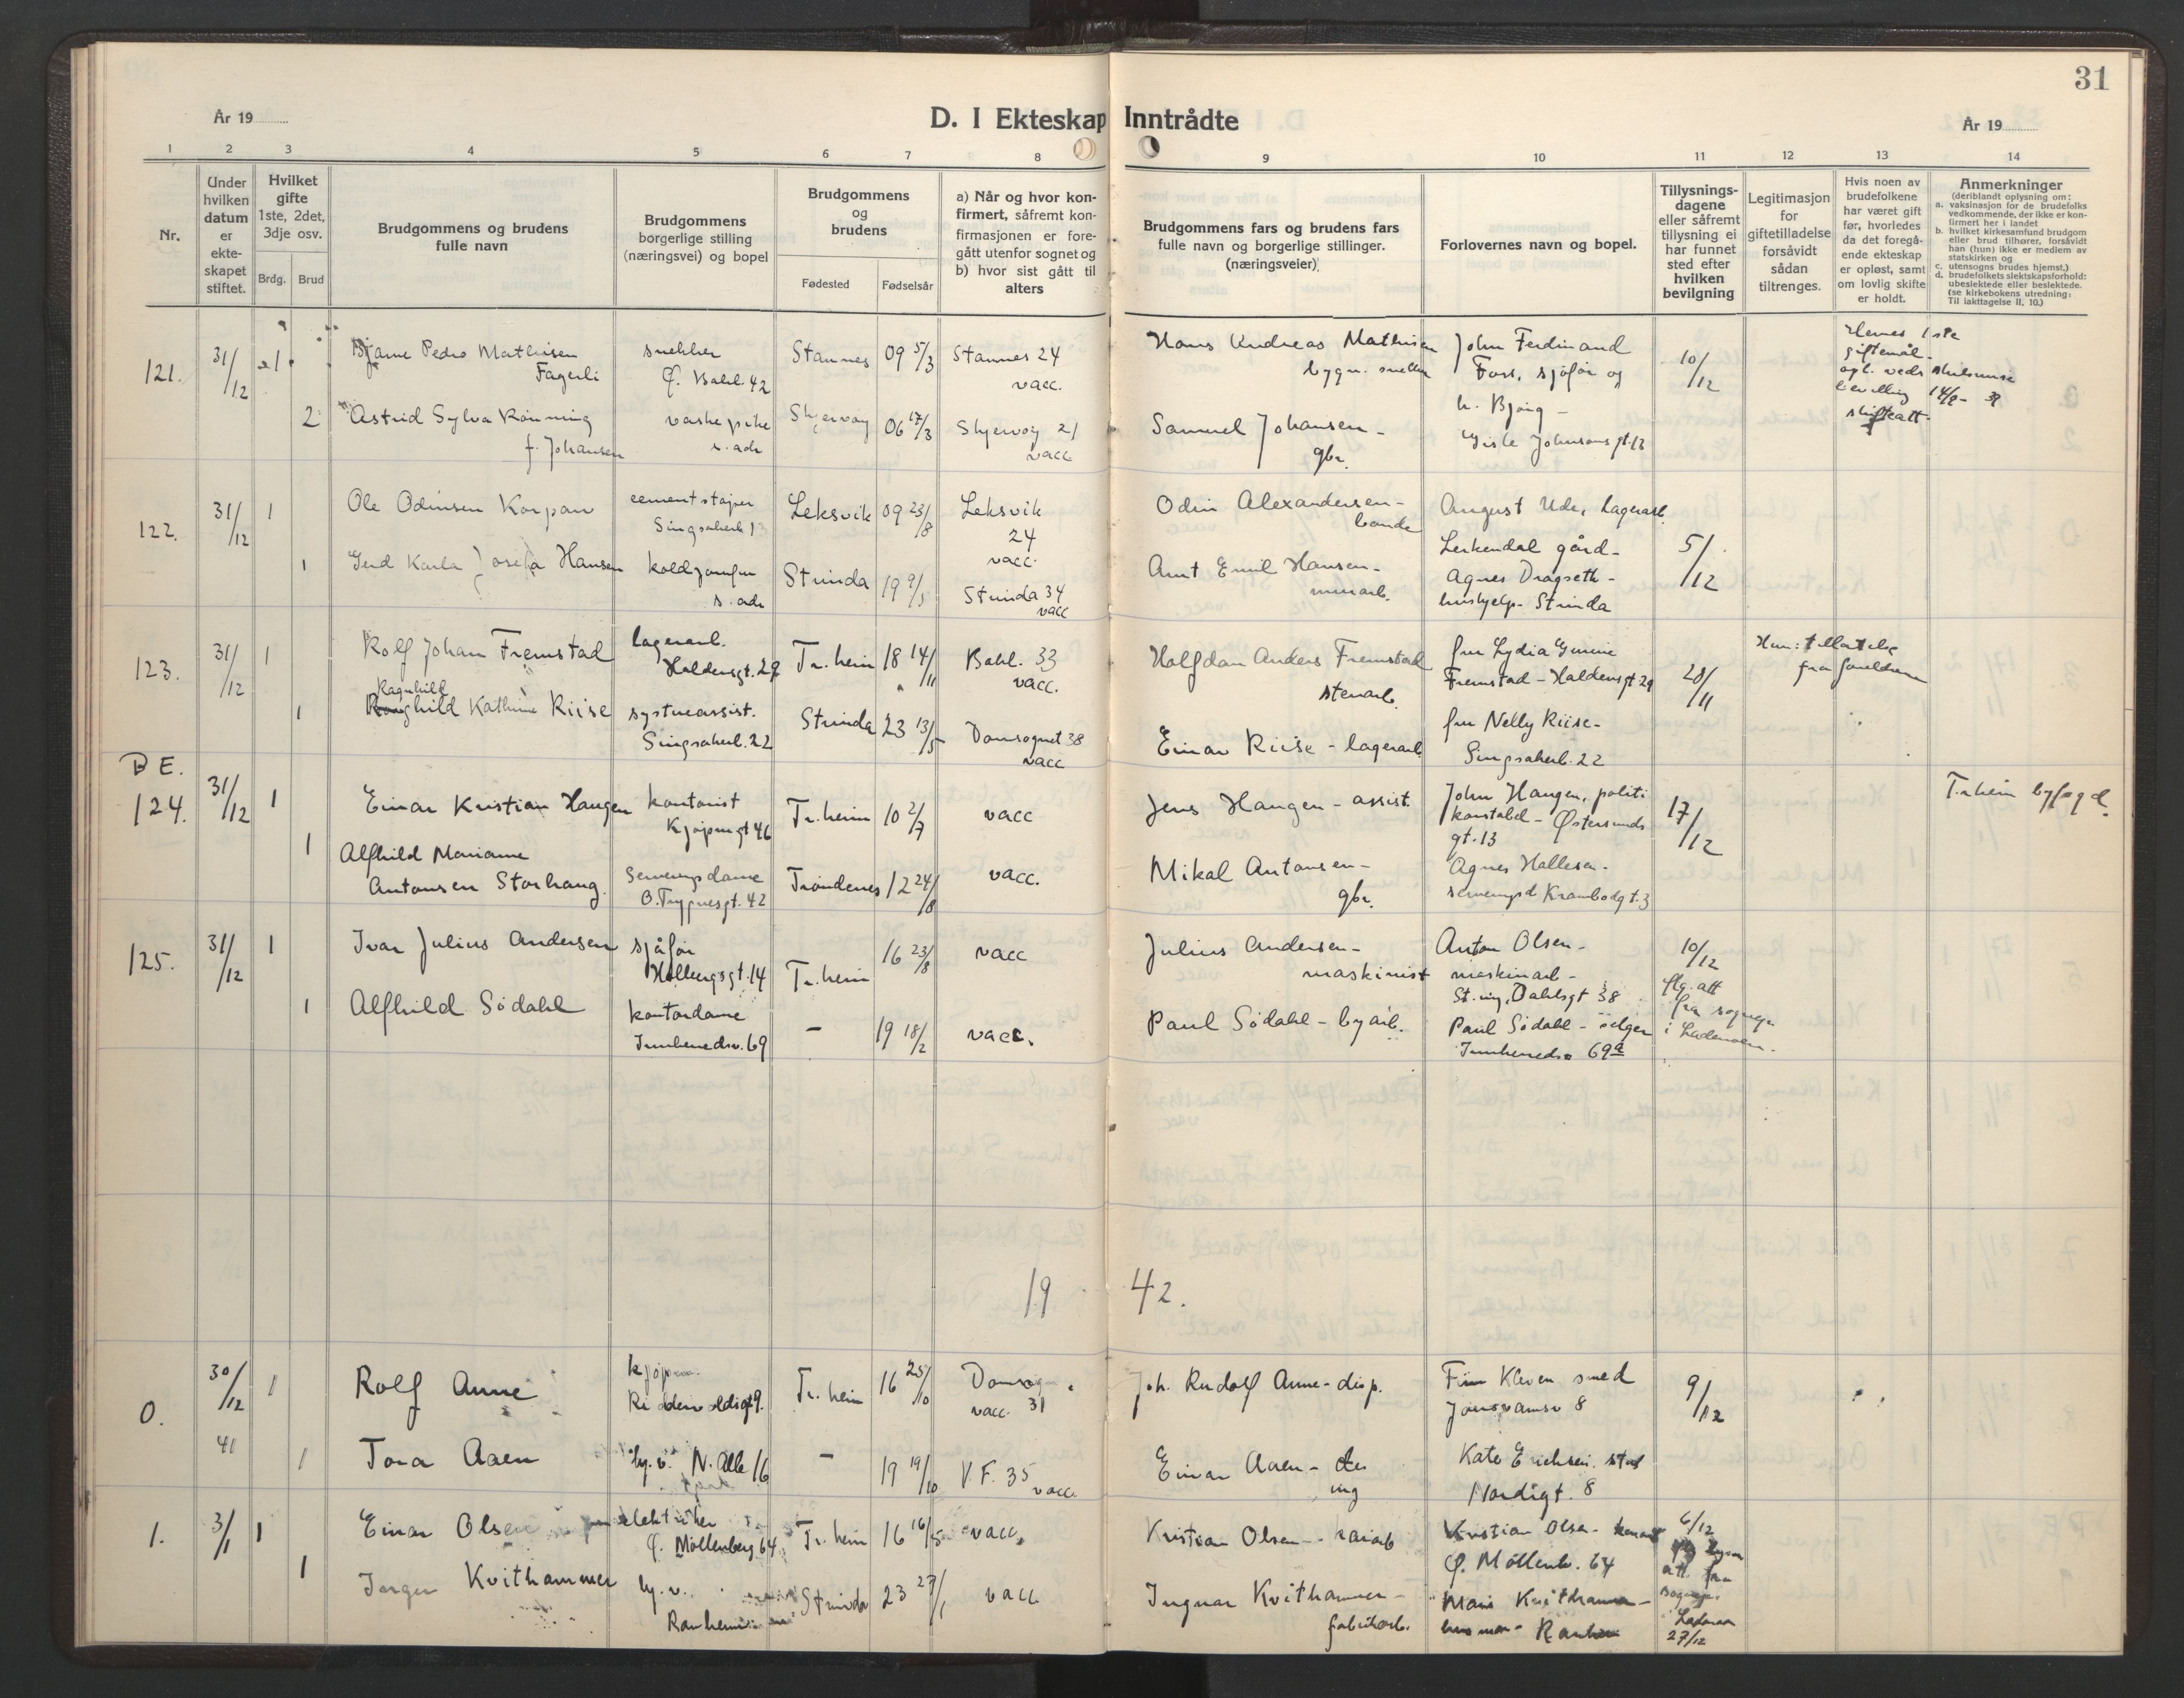 31
År 19
D. I Ekteskap Inntrådte
År 19
1 2 3 4 5 6 7 8 9 10 11 12 13 14
Nr.
Under hvilken datum er ekte-skapet stiftet.
Hvilket gifte 1ste, 2det, 3dje osv.
Brdg. Brud
Brudgommens og brudens fulle navn
Brudgommens borgerlige stilling (næringsvei) og bopel
Brudgommens og brudens
Fødested Fødselsår
a) Når og hvor kon-
firmert, såfremt kon-
firmasjonen er fore-
gått utenfor sognet og
b) hvor sist gått til
alters
Brudgommens fars og brudens fars
fulle navn og borgerlige stillinger.
(næringsveier)
Forlovernes navn og bopel.
Tillysnings-
dagene
eller såfremt
tillysning ei
har funnet
sted efter
hvilken
bevilgning
Legitimasjon
for
giftetilladelse
forsåvidt
sådan
tiltrenges.
Hvis noen av
brudefolkene
har været gift
før, hvorledes
da det foregå-
ende ekteskap
er opløst, samt
om lovlig skifte
er holdt.
Anmerkninger
(deriblandt oplysning om:
a. vaksinasjon for de brudefolks
vedkommende, der ikke er kon-
firmert her i landet
b. hvilket kirkesamfund brudgom
eller brud tilhører, forsåvidt
han (hun) ikke er medlem av
statskirken og
c. utensogns brudes hjemst.)
d. brudefolkets slektskapsforhold:
ubeslektede eller beslektede.
(se kirkebokens utredning:
Til iakttagelse II, 10.)
121. 31/12 1 Bjarne Pedro Mathisen snekker Stamnes 09 5/3 Stamnes 24 Hans Andreas Mathisen John Ferdinand 10/12 Hennes 1ste
Fagerli Ø. Bakl. 42 vacc. bygn. snekker Foss, sjåfør og giftemål.
2 Astrid Sylva Rønning vaskepike Skjervøy 06 17/3 Skjervøy 21 Samuel Johansen - h. Bjørg - bevilling 14/2- 39
f. Johansen s. adr vacc gbr. Gisle Johnsons gt. 12 skifteatt.
122. 31/12 1 Ole Odinsen Korpan cementstøper Leksvik 09 23/8 Leksvik 24 Odin Alexandersen - August Ude, lagerarb. 5/12
Singsakerb 13 vacc. bonde Lerkendal gård -
1 Gerd Karla Josefa Hansen koldjomfru Strinda 19 9/5 Strinda 34 Arnt Emil Hansen - Agnes Dragseth -
s. adr vacc murarb. hushjelp - Strinda
123. 31/12 1 Rolf Johan Fremstad lagerarb. Tr.heim 18 14/11 Bakl. 33 Halfdan Anders Fremstad fru Lydia Gurine 28/11 Hun: tillatelse
Haldensgt. 29 vacc. stenarb. Fremstad - Haldensgt 29 fra foreldrene
Ragnhild
1 Kathrine Riise systueassist. Strinda 23 13/5 Domsognet 38 Einar Riise - lagerarb fru Nelly Riise -
Singsakerb. 22 vacc Singsakerb. 22
B E.
124. 31/12 1 Einar Kristian Haugen kontorist Tr.heim 10 2/7 vacc Jens Haugen - assist. John Haugen, politi 17/12 Tr.heim byfogd.
Kjøpmgt 46 konstabel - Østersunds
gt. 13
1 Alfhild Marianne serveringsdame Trondenes 12 24/8 vacc. Mikal Antonsen - Agnes Hallesen -
Antonsen Storhaug. O. Trygvesgt. 42 gbr. serveringsd Krambodgt. 3
125. 31/12 1 Ivar Julius Andersen sjåfør Tr.heim 16 23/8 vacc Julius Andersen - Anton Olsen - 10/12
Holbergsgt. 14 maskinist maskinarb - flg. att
St. ing. Dahlsgt 38 fra sognepr
1 Alfhild Sødahl kontordame - 19 18/2 vacc. Paul Sødahl - byarb. Paul Sødahl - selger i Lademoen.
Innherredsv. 69 Innherredsv 69a
19 42.
0. 30/12 41 1 Rolf Anne Tr. heim 16 25/10 Domsogn. Joh. Rudolf Anne - disp. Finn Kleven smed 9/12
vacc. 31 Jonsvannsv 8
1 Tora Aaen hj.v. N. Alle 16 - 19 19/10 V.F. 35 Einar Aaen - Kate Erichsen. stud
vacc. ing Nordigt. 8
1. 3/1 1 Einar Olsen elektriker Tr. heim 16 16/5 vacc. Kristian Olsen - Kristian Olsen - 6/12
Ø. Møllenberg 64 Ø. Møllenb. 64 att. fra
1 Kvithammer hj.v. Strinda 23 27/1 vacc Ingvar Kvithammer - Kvithammer -
Ranheim fabrikarb. 27/12